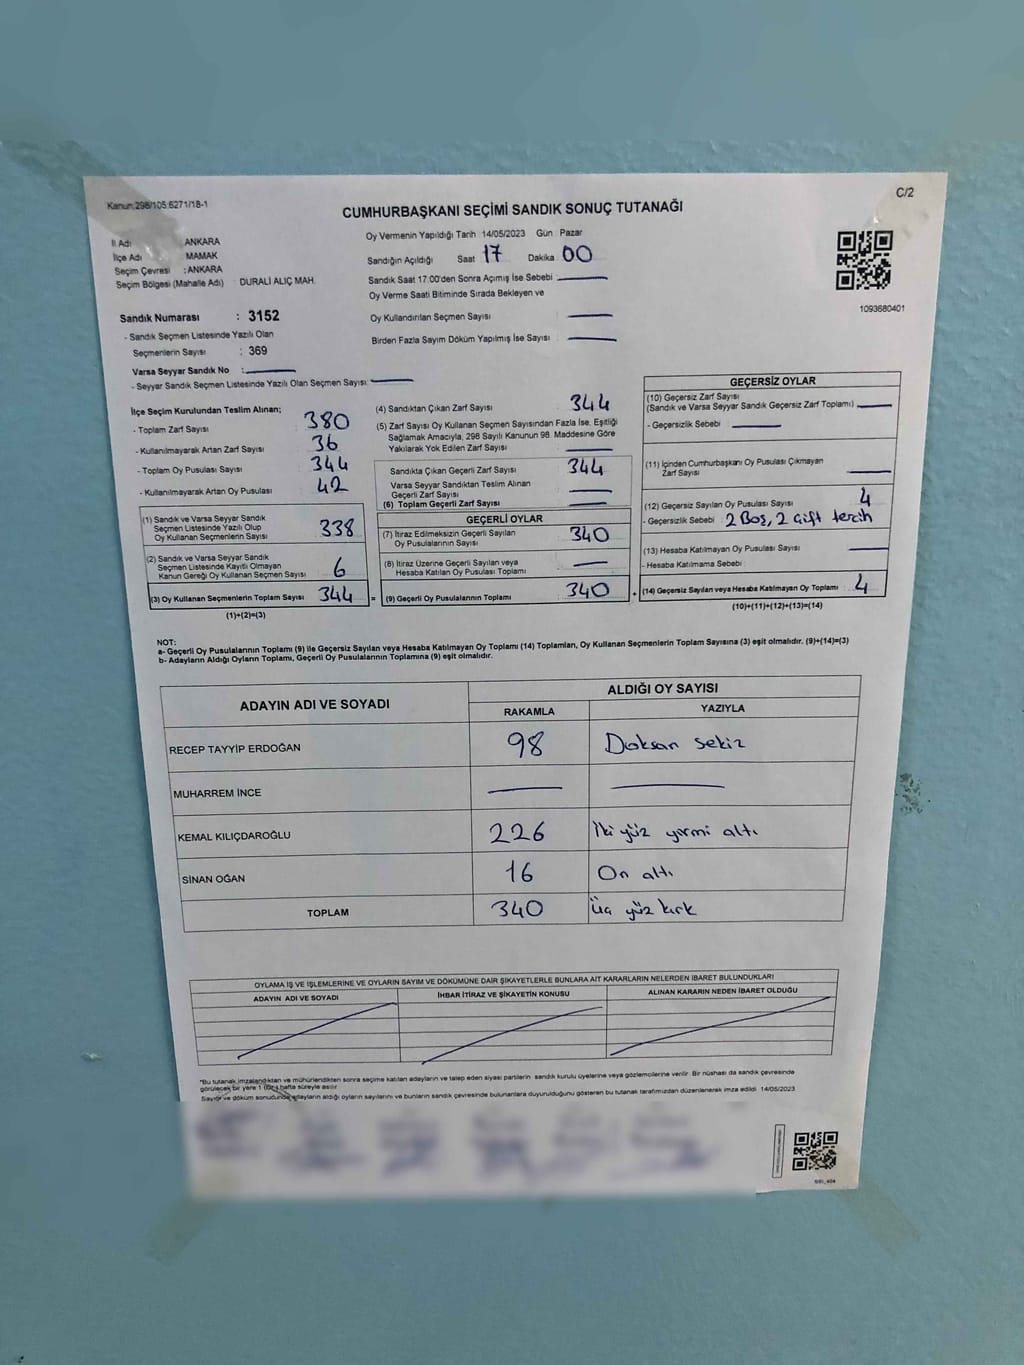 Kanun:298/105:6271/18-1
C/2
CUMHURBAŞKANI SEÇİMİ SANDIK SONUÇ TUTANAĞI
İl Adı : ANKARA
İlçe Adı : MAMAK
Seçim Çevresi : ANKARA
Seçim Bölgesi (Mahalle Adı) : DURALİ ALIÇ MAH.
Oy Vermenin Yapıldığı Tarih 14/05/2023 Gün Pazar
Sandığın Açıldığı Saat 17 Dakika 00
Sandık Saat 17:00'den Sonra Açımış İse Sebebi
Oy Verme Saati Bitiminde Sırada Bekleyen ve
Oy Kullandırılan Seçmen Sayısı
Birden Fazla Sayım Döküm Yapılmış İse Sayısı
1093680401
Sandık Numarası : 3152
- Sandık Seçmen Listesinde Yazılı Olan
Seçmenlerin Sayısı : 369
Varsa Seyyar Sandık No :
- Seyyar Sandık Seçmen Listesinde Yazılı Olan Seçmen Sayısı:
İlçe Seçim Kurulundan Teslim Alınan;
- Toplam Zarf Sayısı 380
- Kullanılmayarak Artan Zarf Sayısı 36
- Toplam Oy Pusulası Sayısı 344
- Kullanılmayarak Artan Oy Pusulası 42
(1) Sandık ve Varsa Seyyar Sandık
Seçmen Listesinde Yazılı Olup
Oy Kullanan Seçmenlerin Sayısı 338
(2) Sandık ve Varsa Seyyar Sandık
Seçmen Listesinde Kayıtlı Olmayan
Kanun Gereği Oy Kullanan Seçmen Sayısı 6
(3) Oy Kullanan Seçmenlerin Toplam Sayısı 344 =
(1)+(2)=(3)
(4) Sandıktan Çıkan Zarf Sayısı 344
(5) Zarf Sayısı Oy Kullanan Seçmen Sayısından Fazla İse, Eşitliği
Sağlamak Amacıyla, 298 Sayılı Kanunun 98. Maddesine Göre
Yakılarak Yok Edilen Zarf Sayısı
Sandıkta Çıkan Geçerli Zarf Sayısı 344
Varsa Seyyar Sandıktan Teslim Alınan
Geçerli Zarf Sayısı
(6) Toplam Geçerli Zarf Sayısı
GEÇERLİ OYLAR
(7) İtiraz Edilmeksizin Geçerli Sayılan
Oy Pusulalarının Sayısı 340
(8) İtiraz Üzerine Geçerli Sayılan veya
Hesaba Katılan Oy Pusulası Toplamı
(9) Geçerli Oy Pusulalarının Toplamı 340 +
GEÇERSİZ OYLAR
(10) Geçersiz Zarf Sayısı
(Sandık ve Varsa Seyyar Sandık Geçersiz Zarf Toplamı)
- Geçersizlik Sebebi
(11) İçinden Cumhurbaşkanı Oy Pusulası Çıkmayan
Zarf Sayısı
(12) Geçersiz Sayılan Oy Pusulası Sayısı 4
- Geçersizlik Sebebi 2 Boş, 2 Çift tercih
(13) Hesaba Katılmayan Oy Pusulası Sayısı
- Hesaba Katılmama Sebebi
(14) Geçersiz Sayılan veya Hesaba Katılmayan Oy Toplamı 4
(10)+(11)+(12)+(13)=(14)
NOT:
a- Geçerli Oy Pusulalarının Toplamı (9) ile Geçersiz Sayılan veya Hesaba Katılmayan Oy Toplamı (14) Toplamları, Oy Kullanan Seçmenlerin Toplam Sayısına (3) eşit olmalıdır. (9)+(14)=(3)
b- Adayların Aldığı Oyların Toplamı, Geçerli Oy Pusulalarının Toplamına (9) eşit olmalıdır.
ADAYIN ADI VE SOYADI
ALDIĞI OY SAYISI
RAKAMLA YAZIYLA
RECEP TAYYİP ERDOĞAN 98 Doksan Sekiz
MUHARREM İNCE
KEMAL KILIÇDAROĞLU 226 İki yüz yirmi altı
SİNAN OĞAN 16 On altı
TOPLAM 340 Üç yüz kırk
OYLAMA İŞ VE İŞLEMLERİNE VE OYLARIN SAYIM VE DÖKÜMÜNE DAİR ŞİKAYETLERLE BUNLARA AİT KARARLARIN NELERDEN İBARET BULUNDUKLARI
ADAYIN ADI VE SOYADI İHBAR İTİRAZ VE ŞİKAYETİN KONUSU ALINAN KARARIN NEDEN İBARET OLDUĞU
*Bu tutanak imzalandıktan ve mühürlendikten sonra seçime katılan adayların ve talep eden siyasi partilerin sandık kurulu üyelerine veya gözlemcilerine verilir. Bir nüshası da sandık çevresinde
görülecek bir yere 1 (bir) hafta süreyle asılır.
Sayım ve döküm sonucunda adayların aldığı oyların sayılarını ve bunların sandık çevresinde bulunanlara duyurulduğunu gösteren bu tutanak tarafımızdan düzenlenerek imza edildi 14/05/2023